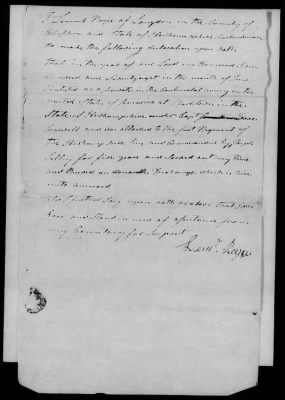 I Samuel Royce of Langdon in the County of
Cheshire and State of Newhampshire
do make the following declaration upon oath
that in the year of our Lord one thousand Seven
hundred and Seventy eight in the month of June
I inlisted as a private in the Continental army in the
united States of America at in the
State of Newhampshire under Capt Isaac
Farwell and was attached to the first Regiment of
the Newhampshire line and Commanded by Joseph
Cilley for five years and Served out my time
and Received an Honorable discharge which is here
unto annexed
and I further Say upon oath that I am
Poor and Stand in need of assistance from
my Country for Support
Sam.l Royce